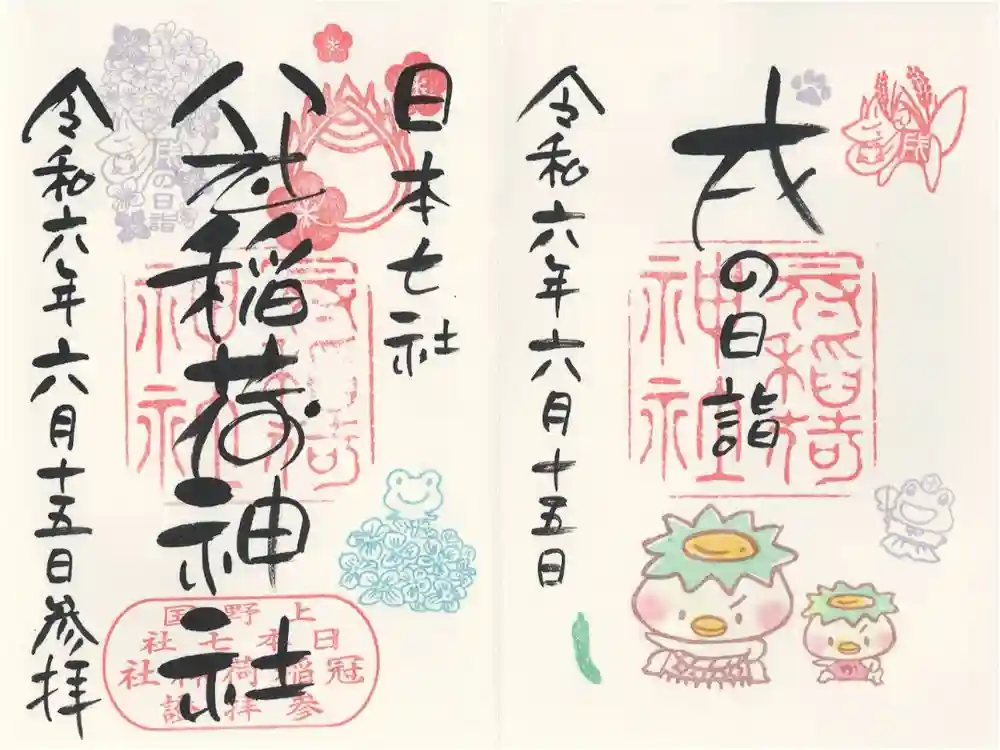 戌の日詣
冠稲荷
神社
令和六年六月十五日
日本七社
冠稲荷神社
冠稲荷
神社
戌の日詣
上野国
日本七社
冠稲荷神社
参拝
令和六年六月十五日参拝